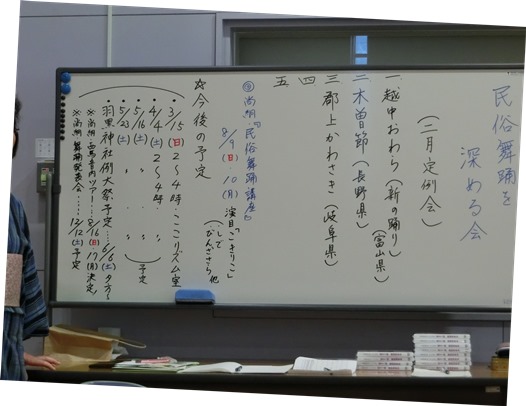 民俗舞踊を
深める会
(二月定例会)
一 越中おわら(新の踊り)
(富山県)
二 木曽節(長野県)
三 郡上かわさき(岐阜県)
四
五
民俗舞踊講座
8/9(日) 10(月) 演目「こきりこ」
「しで
「びんざさら」他
☆今後の予定
・3/15(日)2〜4時・こここリズム室
・4/4(土)2〜4時
・5/16(土) 〃 〃
・5/23(土) 〃 〃
予定
神社例大祭予定…6/6(土)夕方〜
ツアー…8/16(日)17(月)決定
舞踊発表会……12/12(土)予定